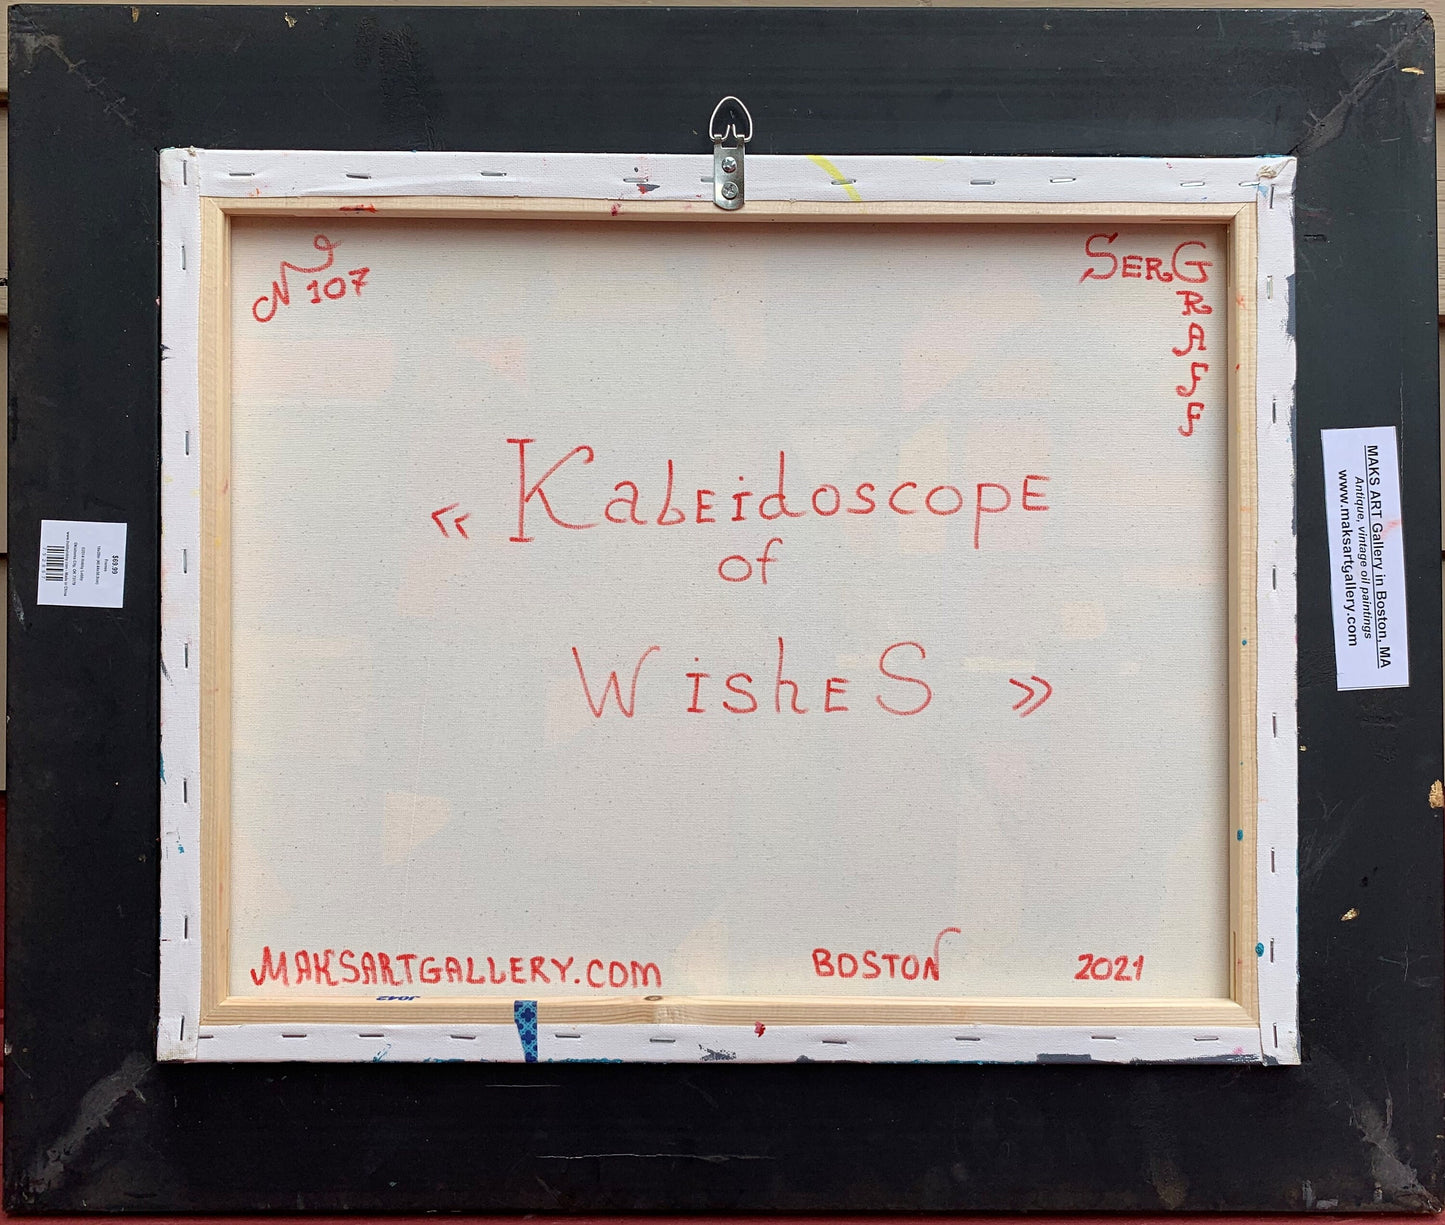 № 107
SERG
RAFF
« KabEidoscopE
of
WishES »
MAKSARTGALLERY.COM
BOSTON
2021
MAKS ART Gallery in Boston, MA
Antique, vintage oil paintings
www.maksartgallery.com
$69.99
Frames